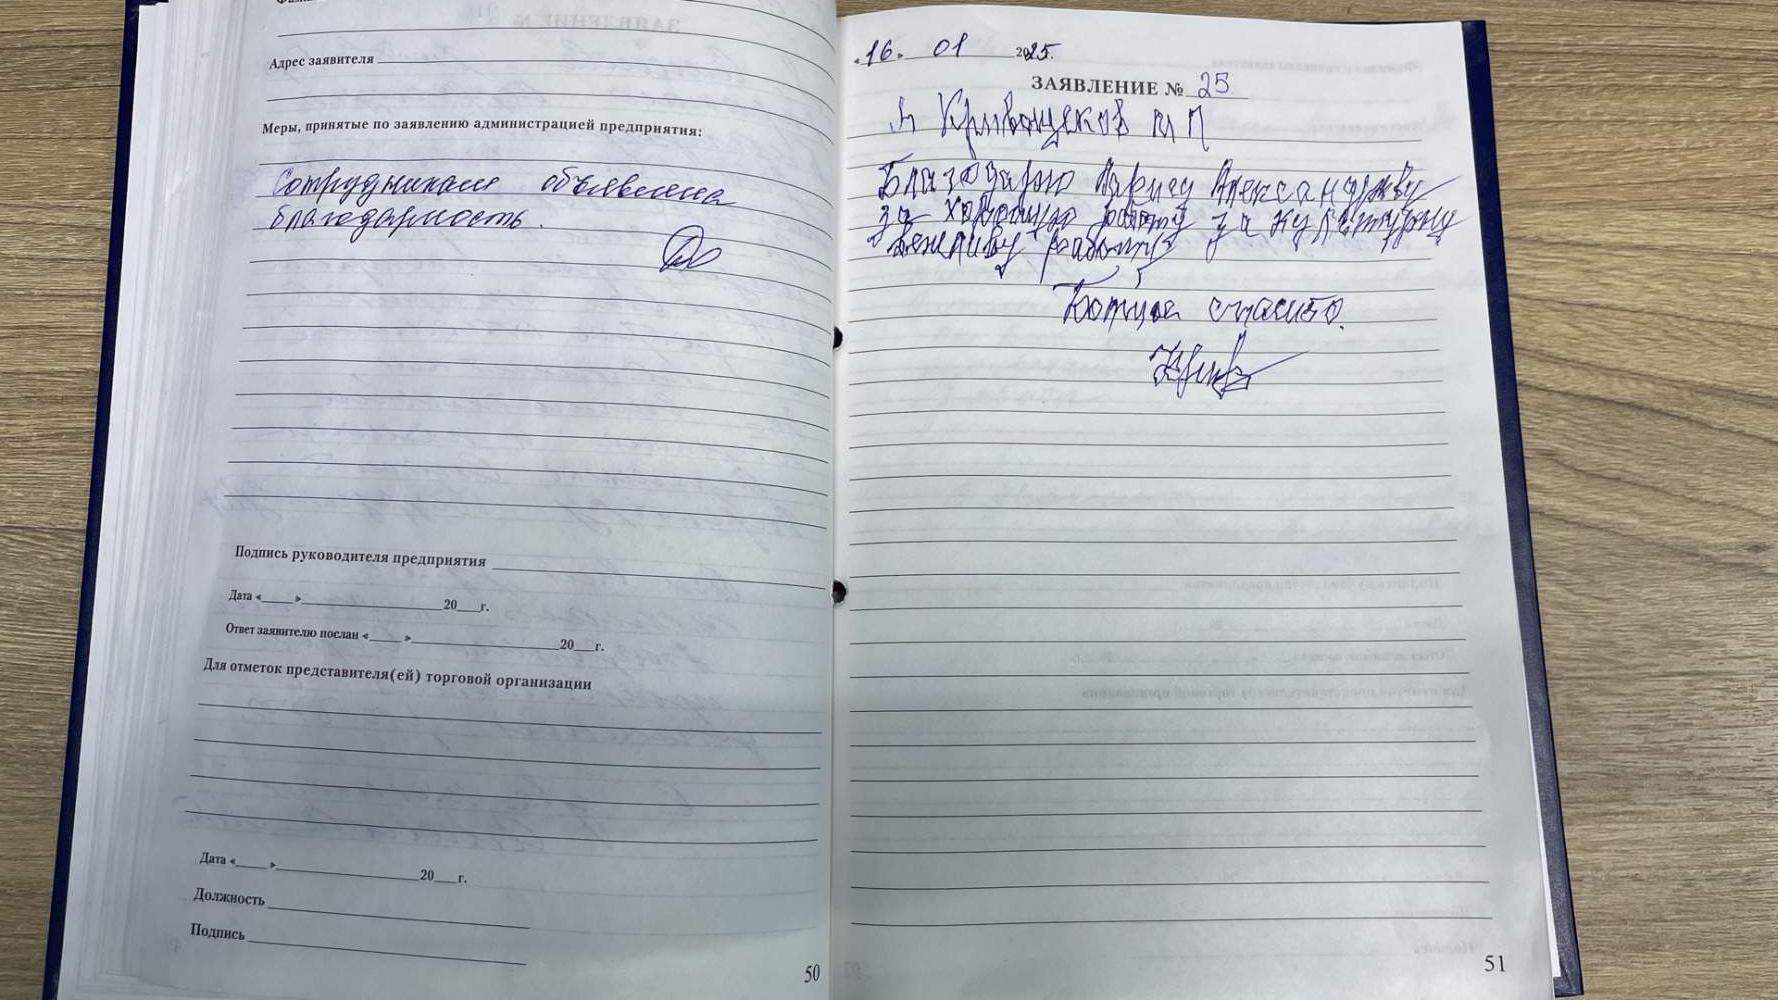 Адрес заявителя
Меры, принятые по заявлению администрацией предприятия:
Сотрудникам объявлена
благодарность.
Подпись руководителя предприятия
Дата «___» ___ 20__г.
Ответ заявителю послан «___» ___ 20__г.
Для отметок представителя(ей) торговой организации
Дата «___» ___ 20__г.
Должность
Подпись
50
«16» 01 2025.
ЗАЯВЛЕНИЕ № 25
Я Кривощеков
Благодарю Ларису Александровну
за хорошую работу за культурну
вежливу работу
спасибо.
51